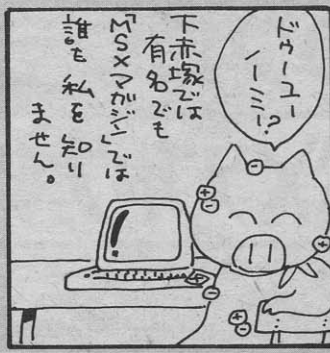 ドゥーユー
ノーミー!?
下赤塚では
有名でも
「MSXマガジン」では
誰も私を知り
ません。
!